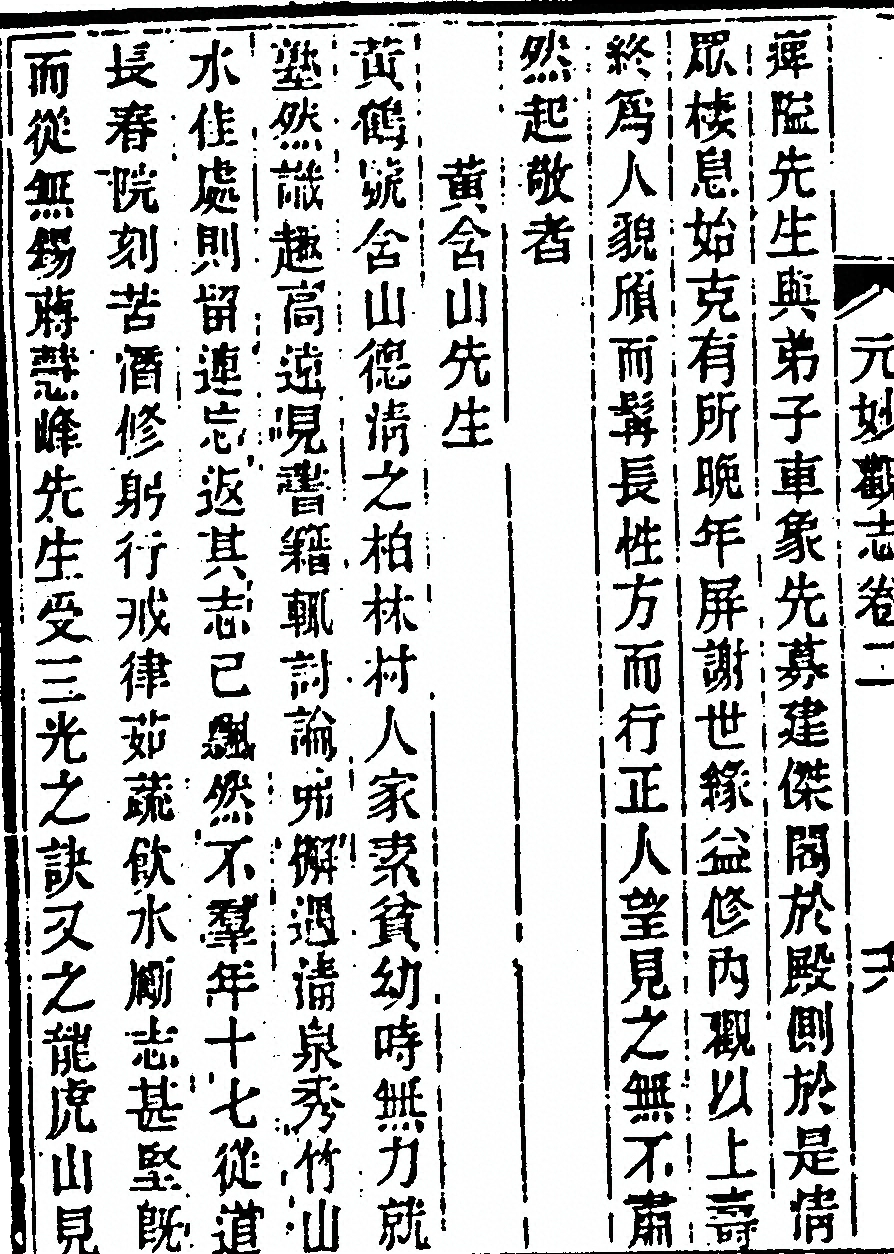 元妙觀志卷二
六
痺隘先生與弟子車象先募建傑閣於殿側於是情
眾棲息始克有所晚年屏謝世緣益修內觀以上壽
終爲人貌頎而髯長性方而行正人望見之無不肅
然起敬者
黃含山先生
黃鶴號含山德清之柏林村人家素貧幼時無力就
塾然識趣高遠見書籍輒討論弗懈遇清泉秀竹山
水佳處則留連忘返其志已飄然不羣年十七從道
長春院刻苦潛修躬行戒律茹蔬飲水勵志甚堅既
而從無錫蔣慧峰先生受三光之訣又之龍虎山見